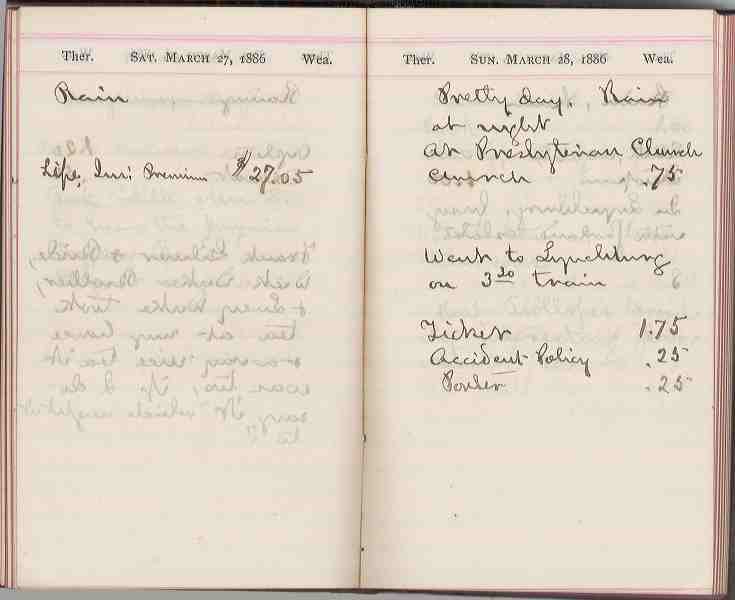 Ther. SAT. MARCH 27, 1886 Wea.
Rain
Life Ins: Premium $27.05
Ther. SUN. MARCH 28, 1886 Wea.
Pretty day. Rain
at night
at Presbyterian Church
Church .75
Went to Lynchburg
on 3 30 train
Ticket 1.75
Accident Policy .25
Porter .25